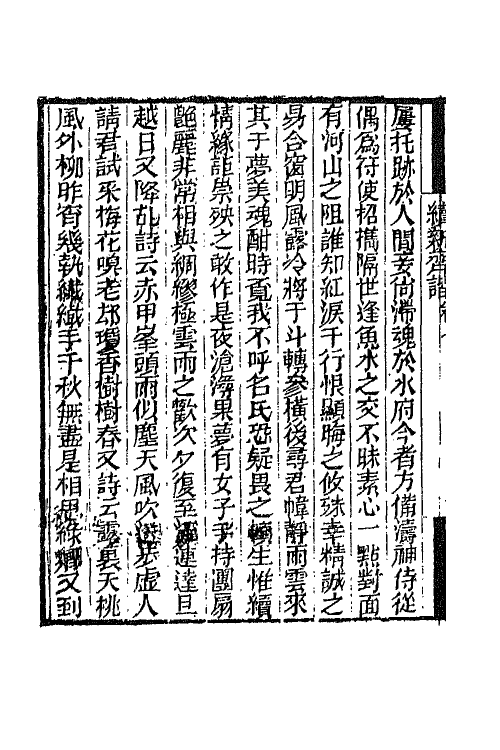 續新齊諧卷
屢托跡於人間妾尙滯魂於水府今者方備濤神侍從
偶爲符使招攜隔世逢魚水之交不昧素心一點對面
有河山之阻誰知紅淚千行恨顯晦之攸殊幸精誠之
易合窗明風露冷將于斗轉參橫後尋君幃靜雨雲來
其于夢美魂酣時覔我不呼名氏恐疑畏之頓生惟續
情緣詎祟殃之敢作是夜滄海果夢有女子手持團扇
艶麗非常相與綢繆極雲雨之歡次夕復至 連達旦
越日又降乩詩云赤甲峯頭雨似塵天風吹 步虛人
請君試采梅花嗅老却瓊香樹樹春又詩云露裏天桃
風外柳昨宵幾執纖纖手千秋無盡是相思緣 又到